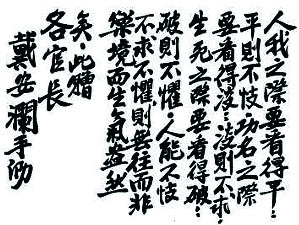 人我之際要看得平‥
平則不忮‥功名之際
要看得淡‥淡則不求‥
生死之際要看得破‥
破則不懼‥人能不忮
不求不懼則無往而非
樂境而生氣盎然
矣‥此贈
各官長
戴安瀾手泐